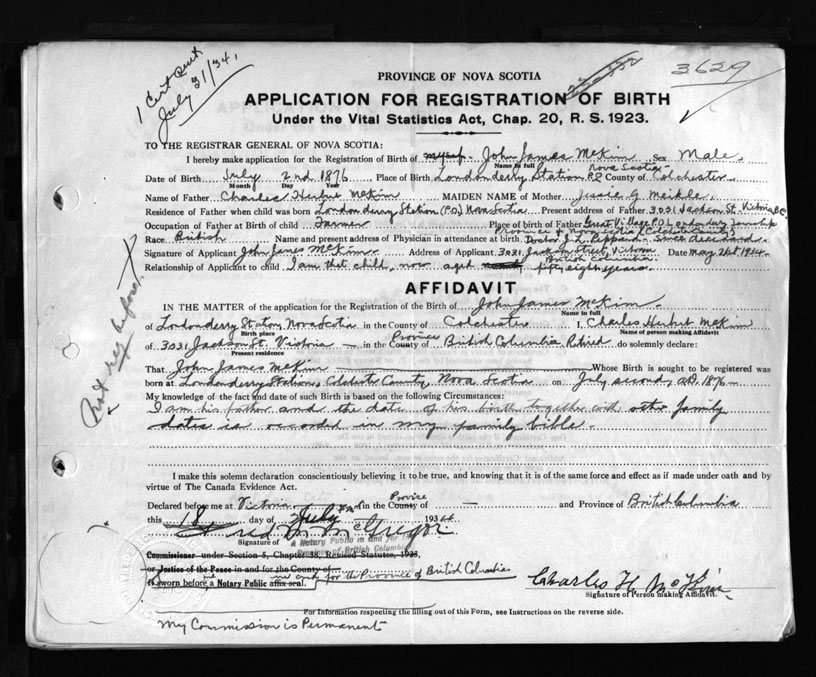 1 Cert sent
July 31/34.
3629
PROVINCE OF NOVA SCOTIA
APPLICATION FOR REGISTRATION OF BIRTH
Under the Vital Statistics Act, Chap. 20, R. S. 1923.
TO THE REGISTRAR GENERAL OF NOVA SCOTIA:
I hereby make application for the Registration of Birth of myself. John James McKim Sex Male.
Name in full
Nova Scotia
Date of Birth July 2nd 1876 Place of Birth Londonderry Station P.O. County of Colchester
Month Day Year
Name of Father Charles Herbert McKim MAIDEN NAME OF Mother Jessie G. Meikle.
Residence of Father when child was born Londonderry Station (P.O.) Nova Scotia Present address of Father 3031 Jackson St. Victoria, B.C.
Occupation of Father at Birth of child Farmer Place of birth of Father Great Village P.O. Londonderry Township
Province of Nova Scotia (Colchester County)
Race British Name and present address of Physician in attendance at birth. Doctor J. L. Peppard - Since deceased.
Signature of Applicant John James McKim. Address of Applicant 3031 Jackson Street, Victoria Date May 21st 1934.
British Columbia.
Relationship of Applicant to child I am that child, now aged fifty eight years.
AFFIDAVIT
IN THE MATTER of the application for the Registration of the Birth of John James McKim.
Name in full
of Londonderry Station Nova Scotia in the County of Colchester I, Charles Herbert McKim
Birth place Name of person making Affidavit
Province
of 3031 Jackson St. Victoria — in the County of British Columbia, Retired do solemnly declare:
Present residence
That John James McKim Whose Birth is sought to be registered was
born at Londonderry Station, Colchester County, Nova Scotia on July second, A.D. 1876
My knowledge of the fact and date of such Birth is based on the following Circumstances:
I am his father and the date of his birth together with other family
dates is recorded in my family bible.
Not reg before.
I make this solemn declaration conscientiously believing it to be true, and knowing that it is of the same force and effect as if made under oath and by
virtue of The Canada Evidence Act.
Province
Declared before me at Victoria in the County of — and Province of British Columbia
this 18 day of July 1934
Fred W. McGregor
Signature of
A Notary Public in and for
of British Columbia
Commissioner under Section 5, Chapter 38, Revised Statutes, 1923,
or Justice of the Peace in and for the County of
If sworn before a Notary Public affix seal. in and for the Province of British Columbia
Charles H. McKim
Signature of Person making Affidavit.
For Information respecting the filling out of this Form, see Instructions on the reverse side.
My Commission is Permanent